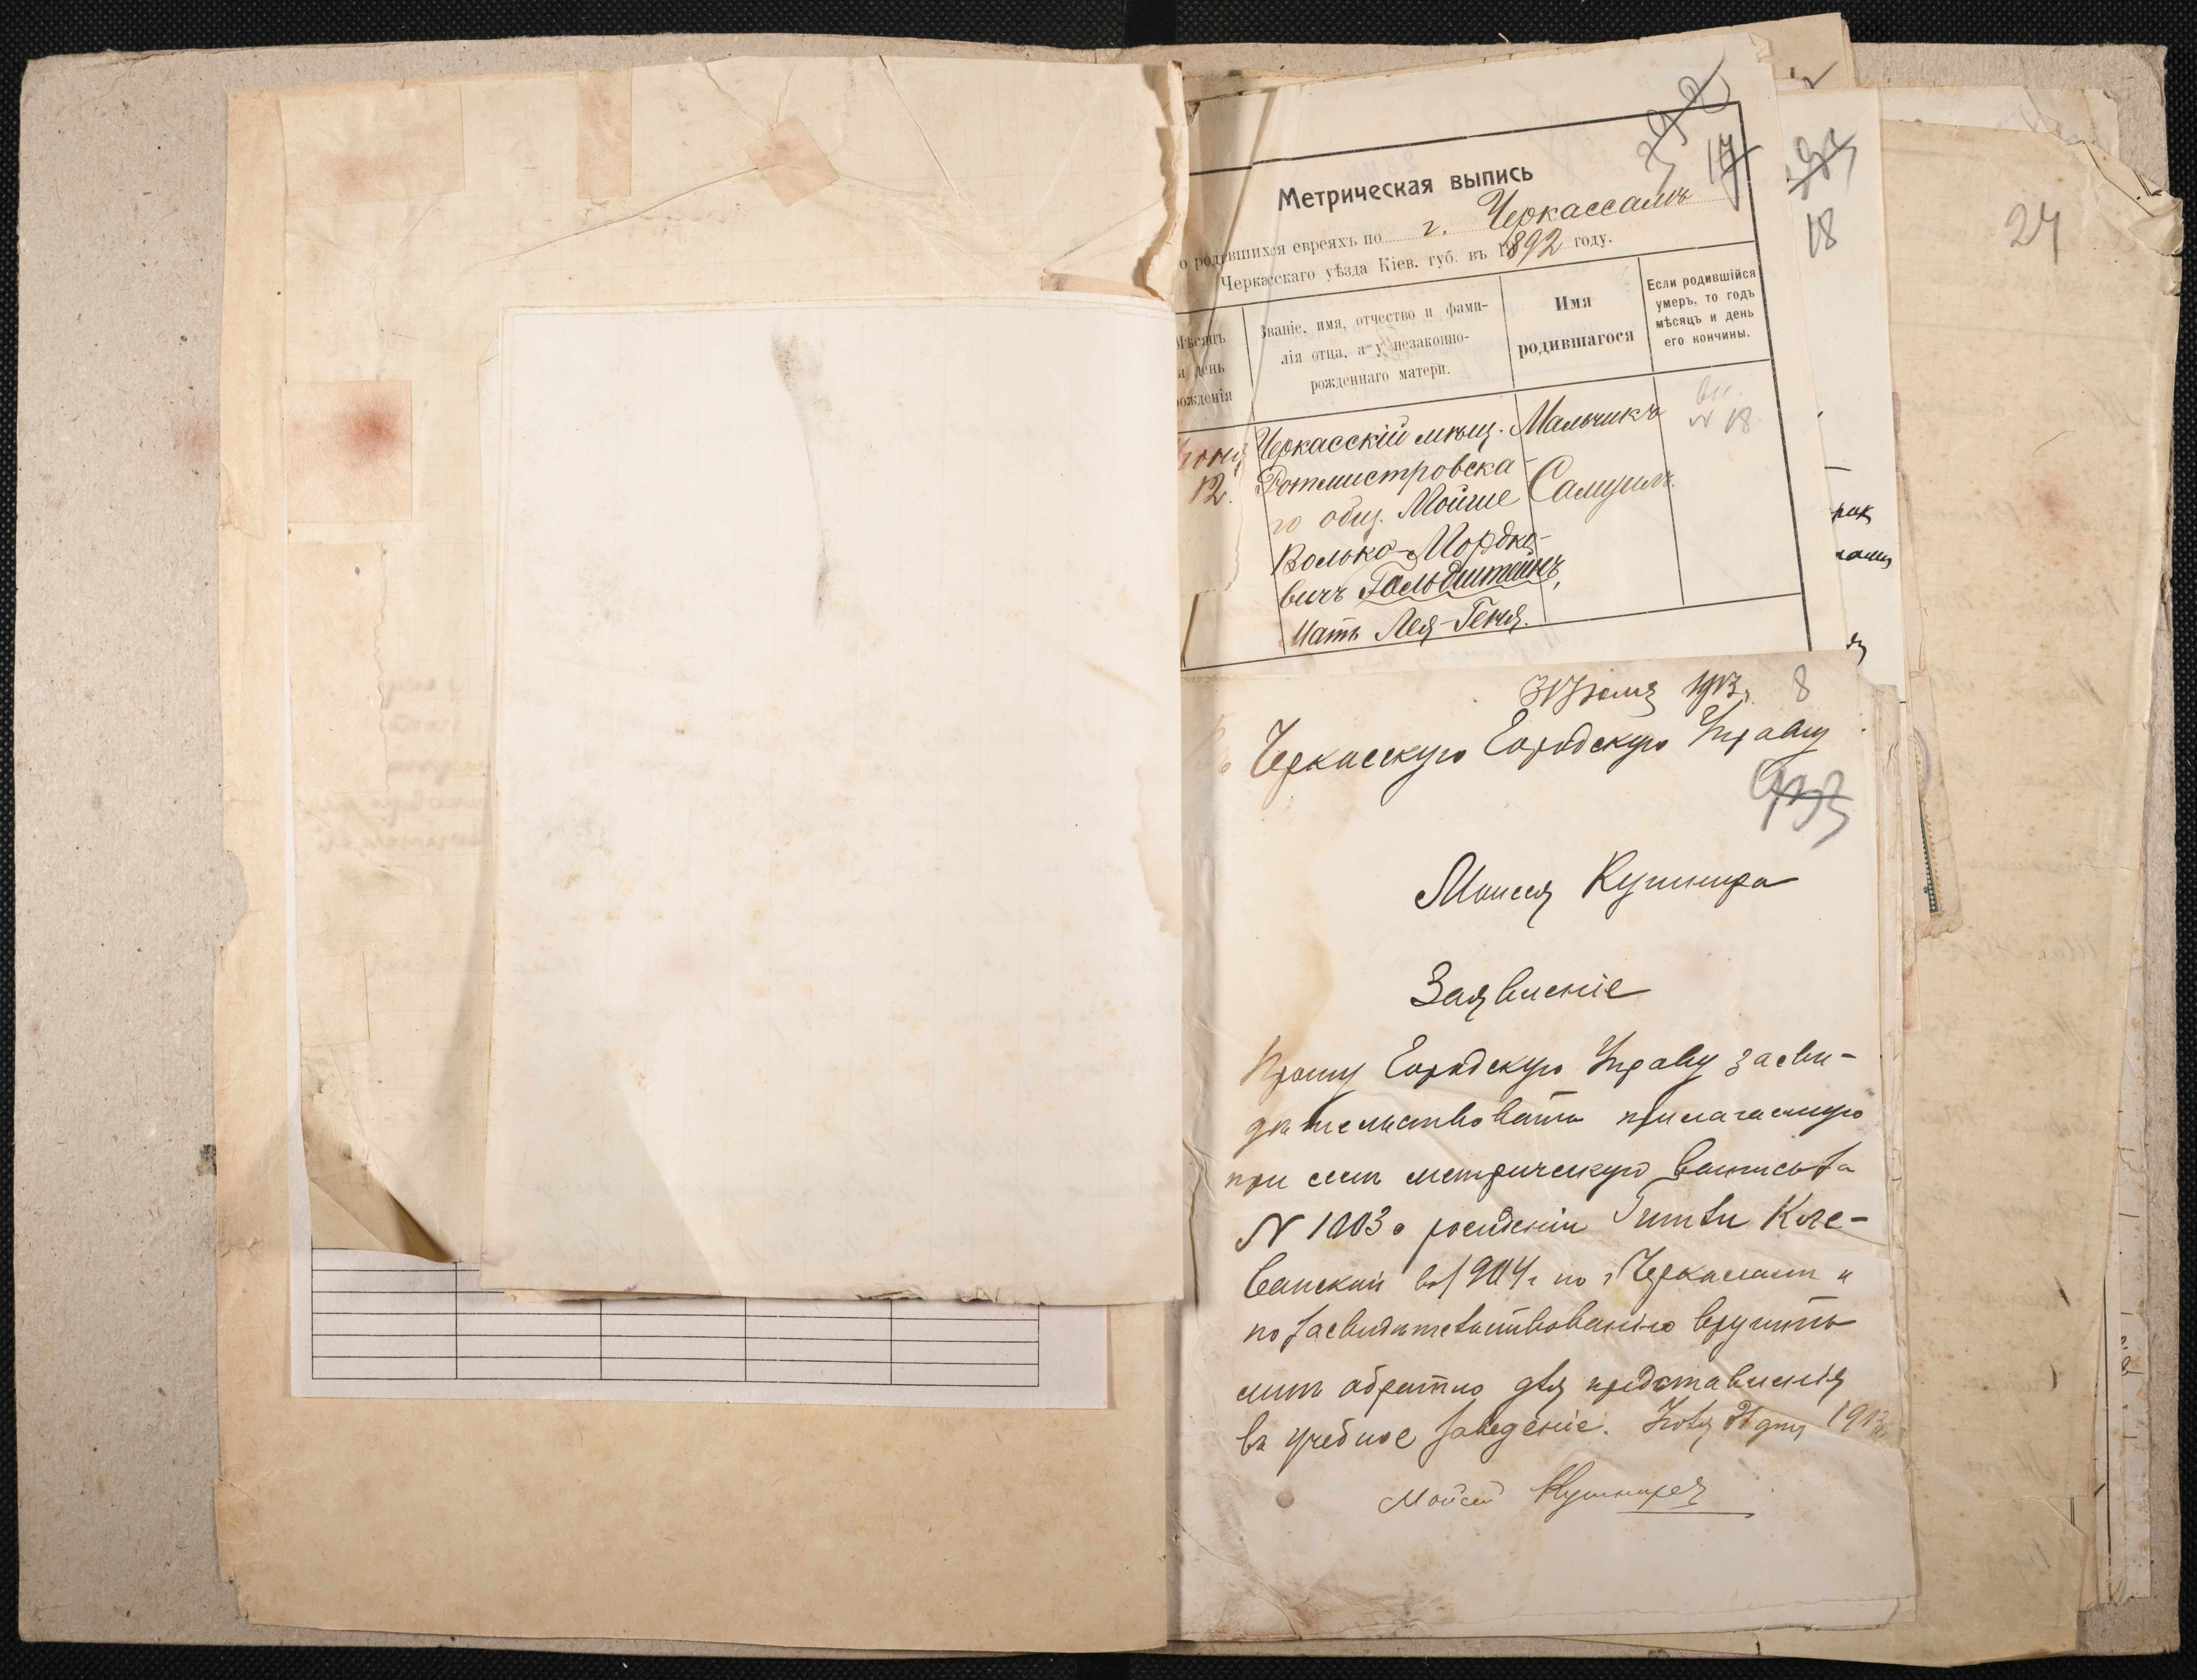 392
17
Метрическая выпись
о родившихся евреяхъ по г. Черкассамъ
Черкасскаго уѣзда Кіев. губ. въ 1892 году.
Мѣсяцъ
и день
рожденія
Званіе, имя, отчество и фами-
лія отца, а у незаконно-
рожденнаго матери.
Имя
родившагося
Если родившійся
умеръ, то годъ
мѣсяцъ и день
его кончины.
12.
Черкасскій мѣщ.
Ротмистровска-
го общ. Мойше
Волько-Мордко-
вичъ Гольдштейнъ,
Мать Лея-Геня.
Мальчикъ
Самуилъ.
N 18
18
24
31 Іюля 1913 г. 8
Черкасскую Городскую Управу
933
Моисея Кушнира
Заявленіе
Прошу Городскую Управу засви-
дѣтельствовать прилагаемую
при семъ метрическую выпись за
N 1003 о рожденіи Гитли Кле-
банской въ 1904 г по г Черкассамъ и
по засвидѣтельствованію вручить
мнѣ обратно для представленія
въ учебное заведеніе. Іюля 31 дня 1913
Мойсей Кушнирея